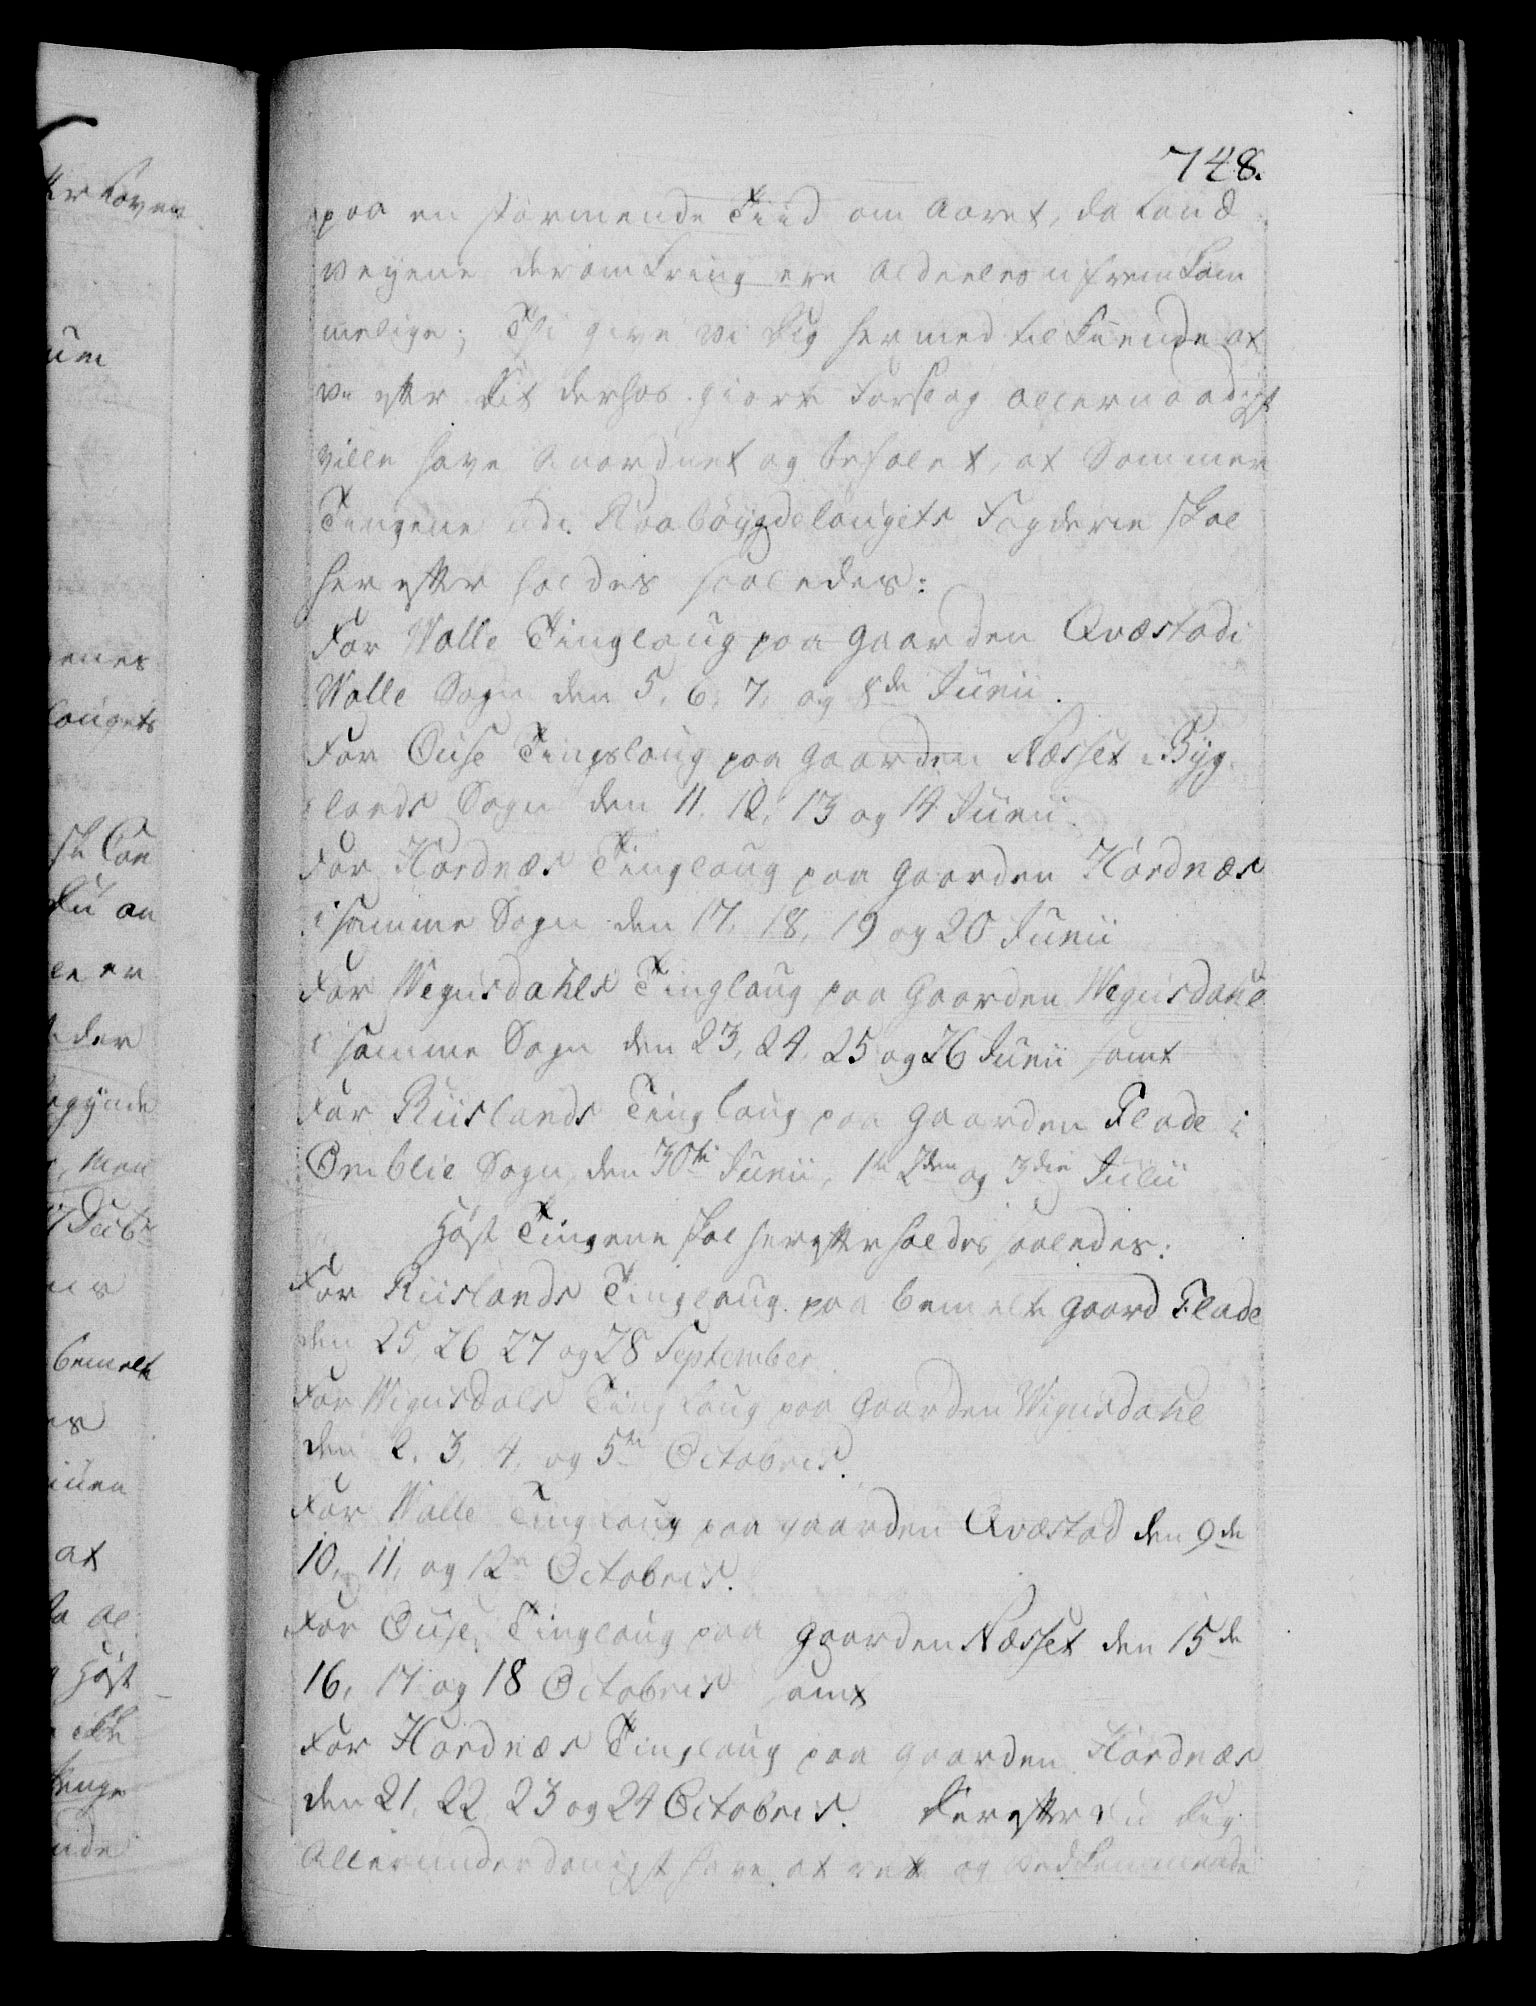 748.
paa en stormende Tiid om Aaret, da Land
veyene deromkring ere aldeeles ufremkom
melige; Thi give vi dig hermed tilkiende at
vi efter dit derhos giorte Forslag allernaadigst
ville have anordnet og befalet, at Sommer
Tingene udi Raabøygdelaugets Fogderie skal
herefter holdes saaledes:
For Walle Tinglaug paa gaarden Qvæstad i
Walle Sogn den 5, 6, 7, og 8de Junii.
For Ouse Tingslaug paa gaarden Næsset i Byg
lands Sogn den 11, 12, 13 og 14 Junii.
For Hordnæs Tinglaug paa gaarden Hordnæs
i samme Sogn den 17, 18, 19 og 20 Junii
For Wegusdahls Tinglaug paa Gaarden Wegusdahl
i samme Sogn den 23, 24, 25 og 26 Junii samt
For Riislands Tinglaug paa gaarden Flade i
Omblie Sogn, den 30te Junii, 1te 2den og 3die Julii
Høst Tingene skal herefter holdes saaledes:
For Riislands Tinglaug paa bemelte gaard Flade
den 25, 26 27 og 28 September
For Wegusdals Tinglaug paa gaarden Wigusdahl
den 2, 3, 4, og 5te Octobris.
For Walle Tinglaug paa gaarden Qvæstad den 9de
10, 11, og 12te Octobris.
For Ouse Tinglaug paa gaarden Næsset den 15de
16, 17 og 18 Octobris samt
For Hordnæs Tinglaug paa gaarden Hordnæs
den 21, 22, 23 og 24 Octobris. Derefter du dig
allerunderdanigst have at rette og vedkommende